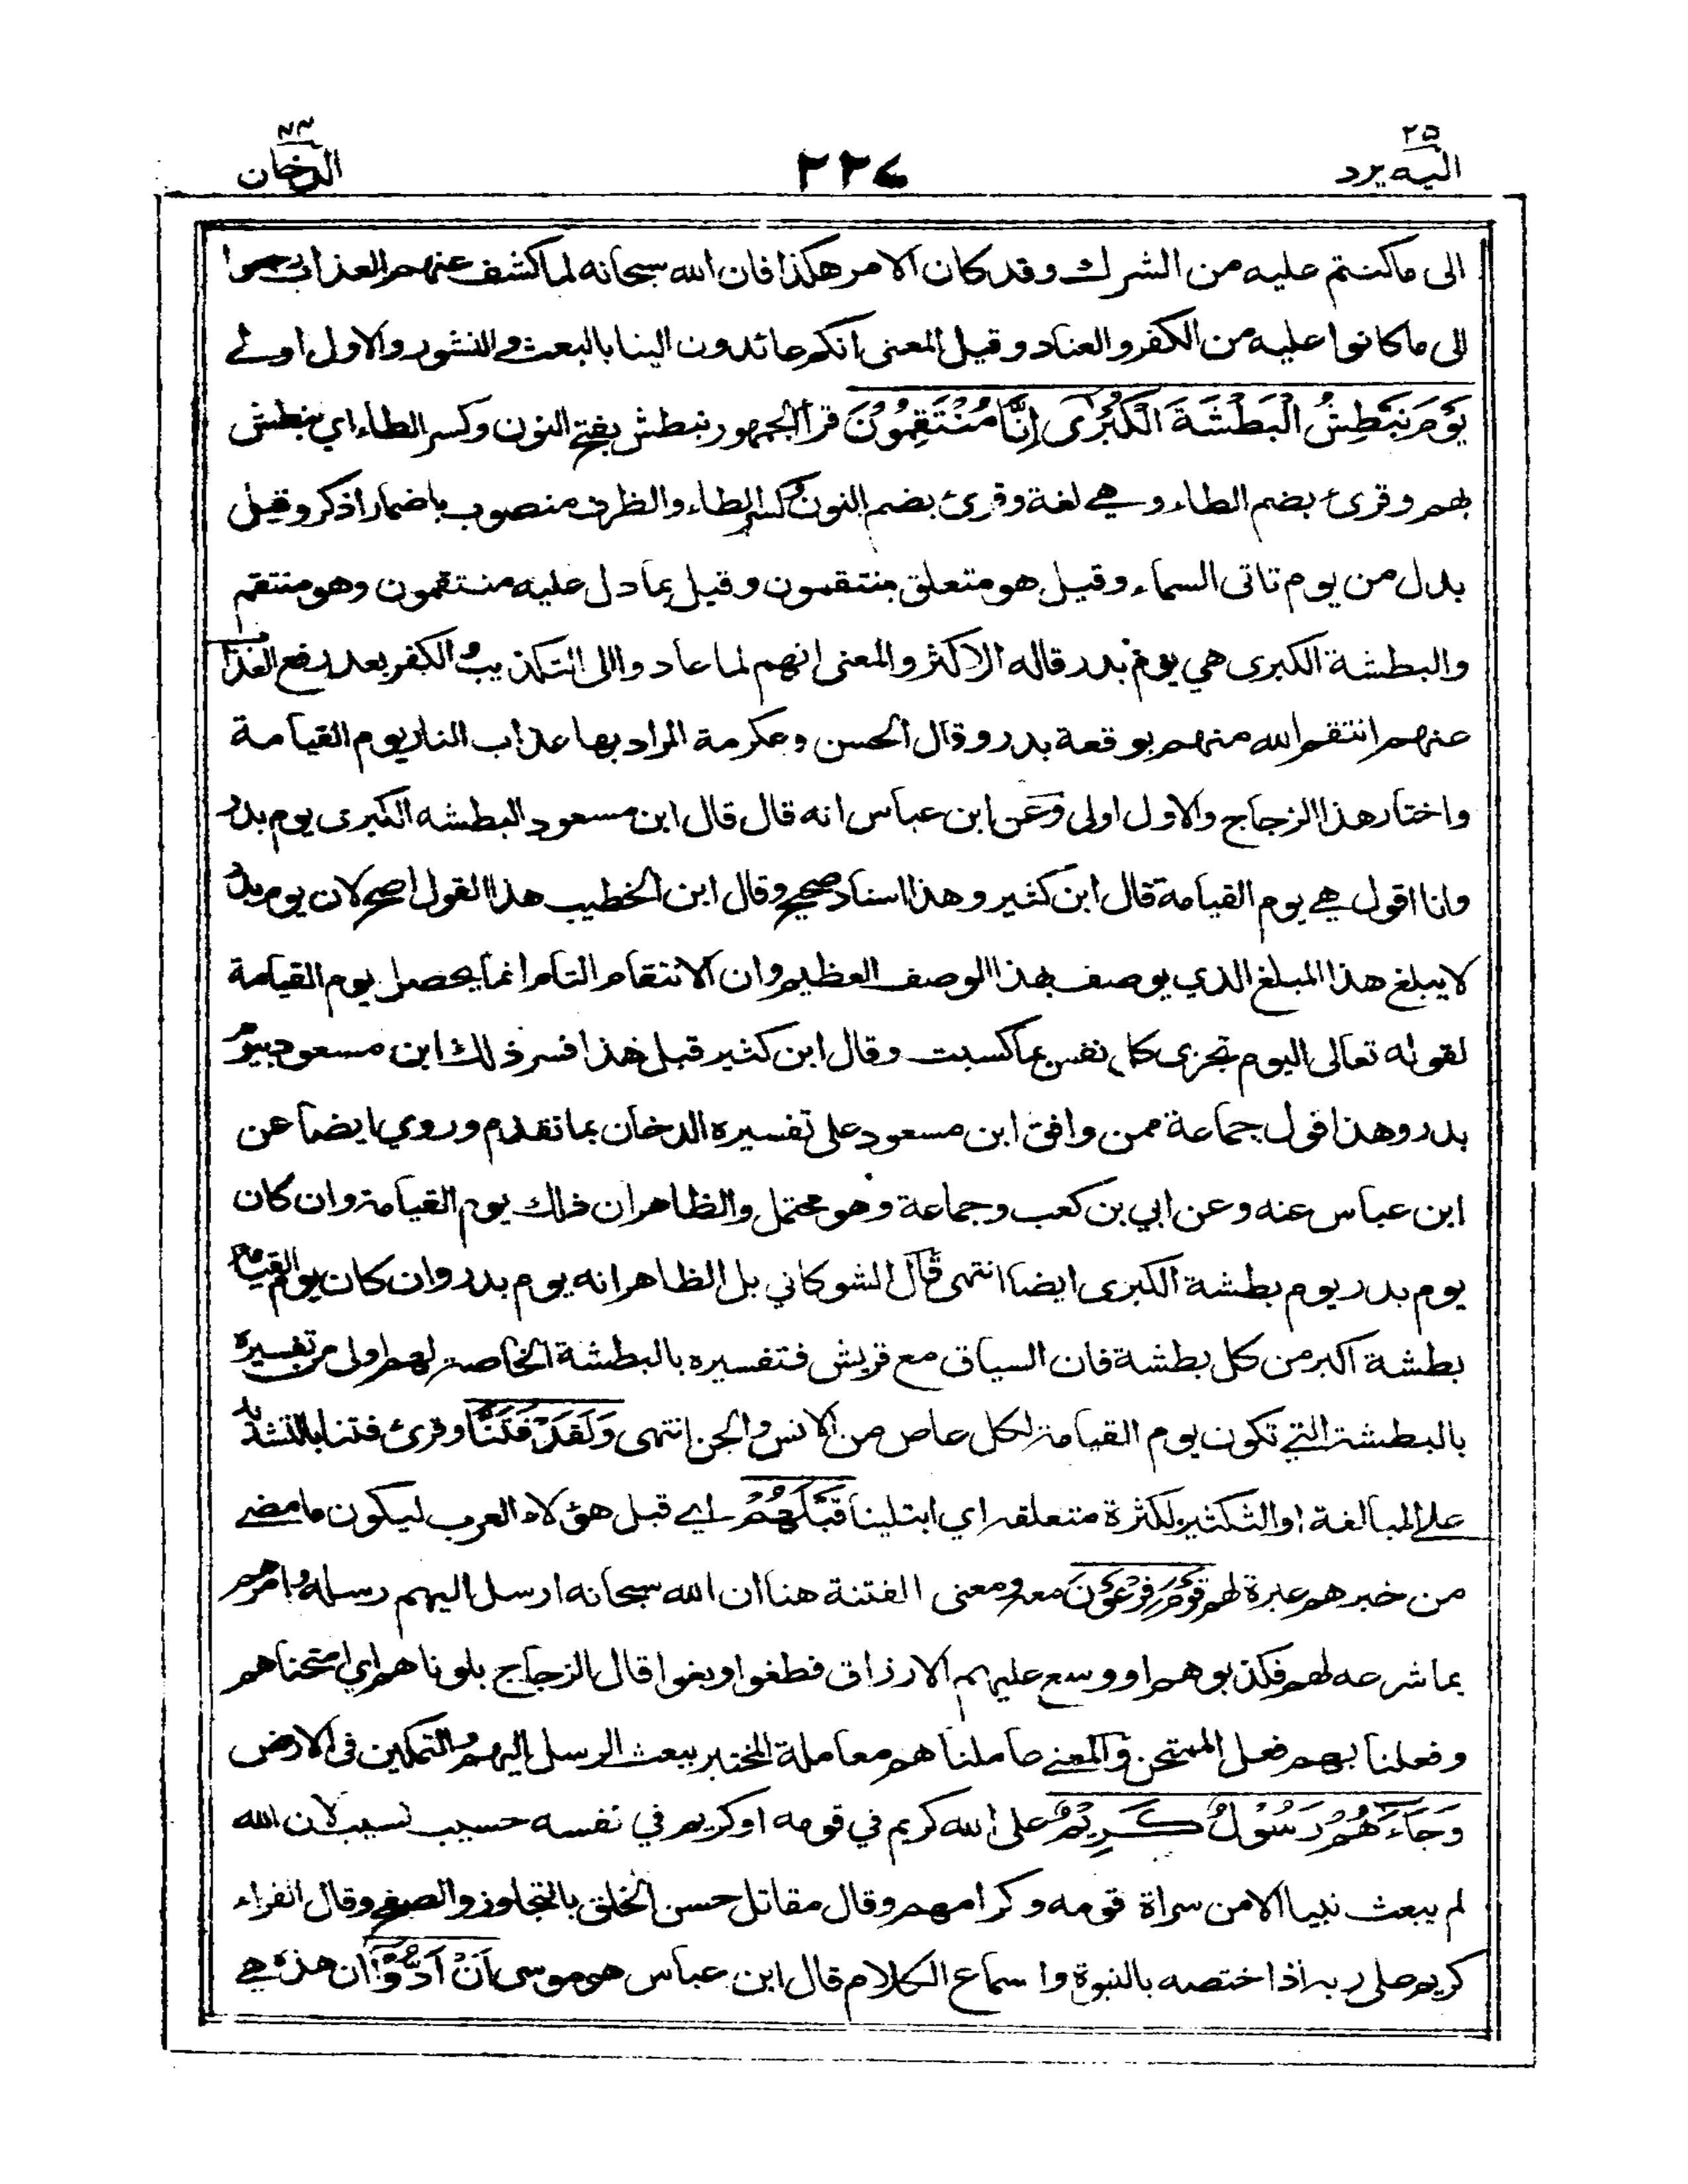 ٢٥
اليه يرد
٢٢٧
٤٤
الدخان
الى ما كنتم عليه من الشرك وقد كان الامر هكذا فان الله سبحانه لما كشف عنهم العذاب رجعوا
الى ما كانوا عليه من الكفر والعناد وقيل المعنى انكم عائدون الينا بالبعث والنشور والاول اولى
يَوْمَ نَبْطِشُ الْبَطْشَةَ الْكُبْرٰى إِنَّا مُنْتَقِمُوْنَ قرأ الجمهور نبطش بفتح النون وكسر الطاء اي نبطش
بهم وقرئ بضم الطاء وهي لغة وقرئ بضم النون وكسر الطاء والظرف منصوب باضمار اذكر وقيل
بدل من يوم تاتى السماء وقيل هو متعلق بمنتقمون وقيل بما دل عليه منتقمون وهو منتقم
والبطشة الكبرى هي يوم بدر قاله الاكثر والمعنى انهم لما عادوا الى التكذيب والكفر بعد رفع العذاب
عنهم انتقم الله منهم بوقعة بدر وقال الحسن وعكرمة المراد بها عذاب النار يوم القيامة
واختار هذا الزجاج والاول اولى وعن ابن عباس انه قال قال ابن مسعود البطشه الكبرى يوم بدر
وانا اقول هي يوم القيامة قال ابن كثير وهذا اسناد صحيح وقال ابن الخطيب هذا القول اصح لان يوم بدر
لا يبلغ هذا المبلغ الذي يوصف بهذا الوصف العظيم وان الانتقام التام انما يحصل يوم القيامة
لقوله تعالى اليوم تجزى كل نفس بما كسبت وقال ابن كثير قبل هذا فسر ذلك ابن مسعود بيوم
بدر وهذا قول جماعة ممن وافق ابن مسعود على تفسيره الدخان بما تقدم وروي ايضا عن
ابن عباس عنه وعن ابي بن كعب وجماعة وهو محتمل والظاهر ان ذلك يوم القيامة وان كان
يوم بدر يوم بطشة الكبرى ايضا انتهى قال الشوكاني بل الظاهر انه يوم بدر وان كان يوم القيامة
بطشة اكبر من كل بطشة فان السياق مع قريش فتفسيره بالبطشة الخاصة لهم اولى من تفسيره
بالبطشة التي تكون يوم القيامة لكل عاص من الانس والجن انتهى وَلَقَدْ فَتَنَّا وقرئ فتنا بالتشديد
على المبالغة او التكثير لكثرة متعلقه اي ابتلينا قَبْلَهُمْ اي قبل هؤلاء العرب ليكون ما مضى
من خبرهم عبرة لهم قَوْمَ فِرْعَوْنَ معه ومعنى الفتنة هنا ان الله سبحانه ارسل اليهم رسله وامرهم
بما شرعه لهم فكذبوهم او وسع عليهم الارزاق فطغوا وبغوا قال الزجاج بلوناهم اي امتحناهم
وفعلنا بهم فعل الممتحن والمعنى عاملناهم معاملة المختبر ببعث الرسل اليهم والتمكين فى الارض
وَجَاءَهُمْ رَسُوْلٌ كَرِيْمٌ على الله كريم في قومه او كريم في نفسه حسيب نسيب لان الله
لم يبعث نبيا الا من سراة قومه وكرامهم وقال مقاتل حسن الخلق بالتجاوز والصفح وقال الفراء
كريم على ربه اذا ختصه بالنبوة واسماع الكلام قال ابن عباس هو موسى اَنْ اَدُّوْا ان هذه هي